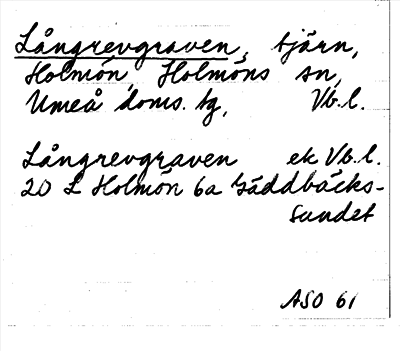 Långrevgraven, tjärn,
Holmön, Holmöns sn,
Umeå doms. tg, Vb. l.
Långrevgraven ek Vb. l.
20 L Holmön 6a Gäddbäcks-
sundet
ASO 61